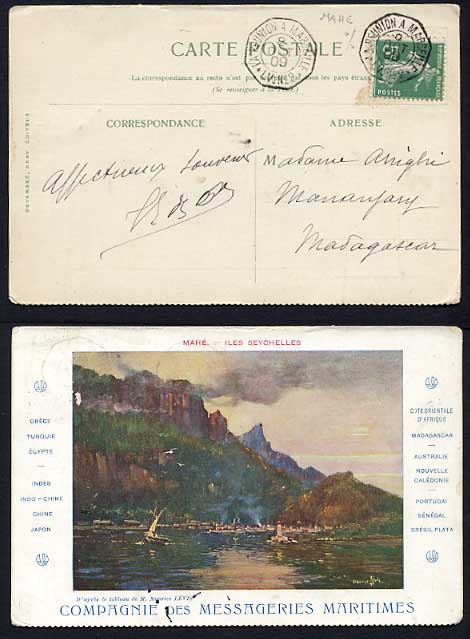 MAHE
CARTE POSTALE
La correspondance au recto n'est pas tous les pays étrangers
(Se renseigner à la Poste)
LA RÉUNION A MARSEILLE
09
LA RÉUNION A MARSEILLE
09
CORRESPONDANCE
ADRESSE
DEVAMBEZ, GRAV. ÉDITEUR
Affectueux souvenir
Madame Arrighi
Mananjary
Madagascar
MAHÉ. - ILES SEYCHELLES
GRÈCE
TURQUIE
ÉGYPTE
INDES
INDO-CHINE
CHINE
JAPON
CÔTE ORIENTALE
D'AFRIQUE
MADAGASCAR
AUSTRALIE
NOUVELLE
CALÉDONIE
PORTUGAL
SÉNÉGAL
BRÉSIL PLATA
D'après le tableau de M. Maurice LÉVIS
COMPAGNIE DES MESSAGERIES MARITIMES